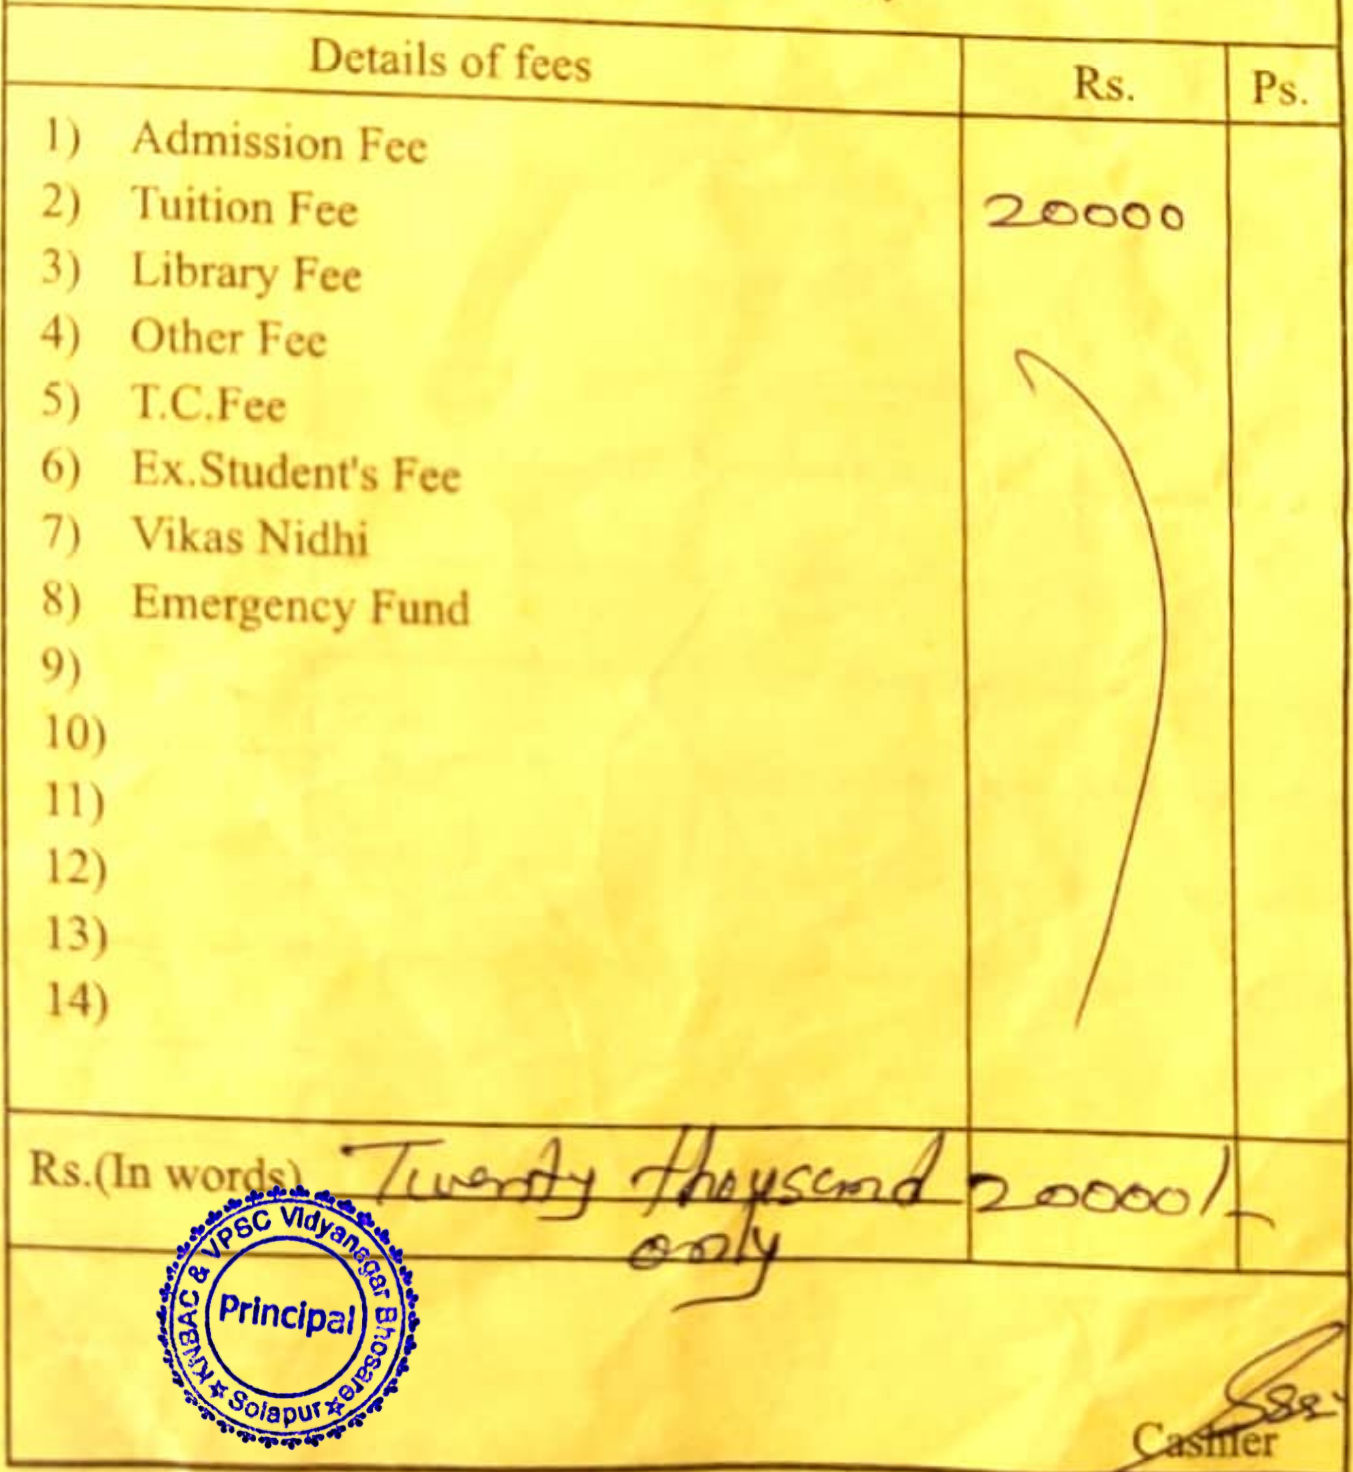 Details of fees Rs. Ps.
1) Admission Fee
2) Tuition Fee 20000
3) Library Fee
4) Other Fee
5) T.C.Fee
6) Ex.Student's Fee
7) Vikas Nidhi
8) Emergency Fund
9)
10)
11)
12)
13)
14)
Rs.(In words) Twenty thousand 20000/-
only
KNBAC & VPSC Vidyanagar Bhosare
Principal
Solapur
Cashier